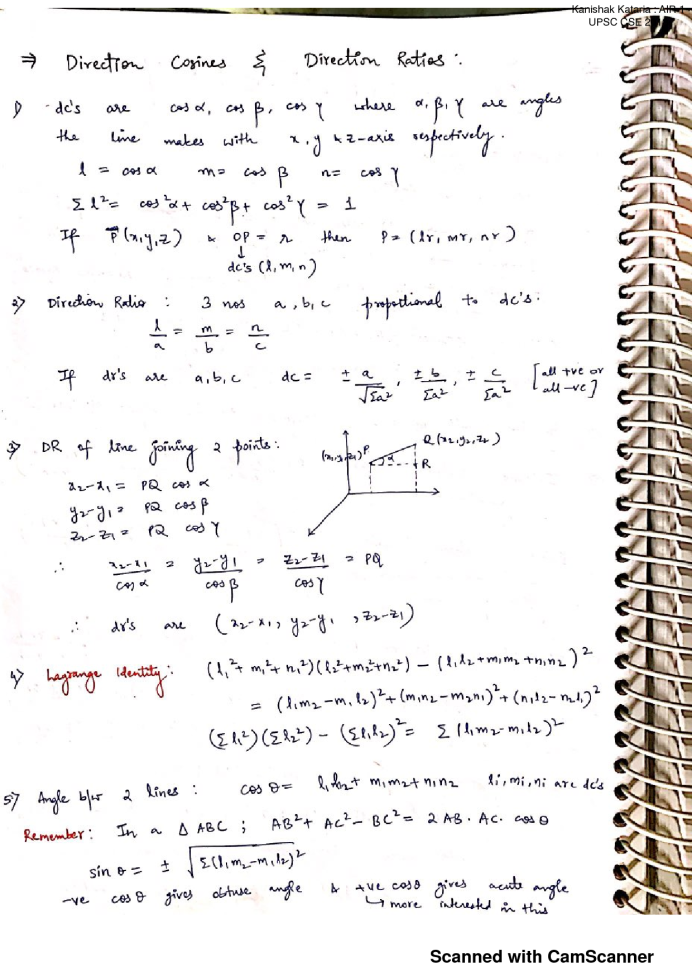 Kanishak Kataria : AIR-1
UPSC CSE 2
⇒ Direction Cosines & Direction Ratios :
1) dc's are cos α, cos β, cos γ where α, β, γ are angles
the line makes with x, y & z-axis respectively.
l = cos α m = cos β n = cos γ
Σ l² = cos²α + cos²β + cos²γ = 1
If P(x,y,z) & OP = r then P = (lr, mr, nr)
↓
dc's (l, m, n)
2) Direction Ratio : 3 nos a, b, c propotional to dc's.
l/a = m/b = n/c
If dr's are a, b, c dc = ± a/√Σa² , ± b/Σa² , ± c/Σa² [all +ve or
all -ve]
3) DR of line joining 2 points :
(x₁,y₁,z₁) P Q (x₂,y₂,z₂)
α R
x₂-x₁ = PQ cos α
y₂-y₁ = PQ cos β
z₂-z₁ = PQ cos γ
∴ x₂-x₁/cos α = y₂-y₁/cos β = z₂-z₁/cos γ = PQ
∴ dr's are (x₂-x₁, y₂-y₁, z₂-z₁)
4) Lagrange Identity : (l₁²+m₁²+n₁²)(l₂²+m₂²+n₂²) - (l₁l₂+m₁m₂+n₁n₂)²
= (l₁m₂-m₁l₂)² + (m₁n₂-m₂n₁)² + (n₁l₂-n₂l₁)²
(Σl₁²)(Σl₂²) - (Σl₁l₂)² = Σ(l₁m₂-m₁l₂)²
5) Angle b/w 2 lines : cos θ = l₁l₂ + m₁m₂ + n₁n₂ li, mi, ni are dc's
Remember : In a Δ ABC ; AB² + AC² - BC² = 2 AB. AC. cos θ
sin θ = ± √Σ(l₁m₂-m₁l₂)²
-ve cos θ gives obtuse angle & +ve cos θ gives acute angle
↳ more interested in this
Scanned with CamScanner